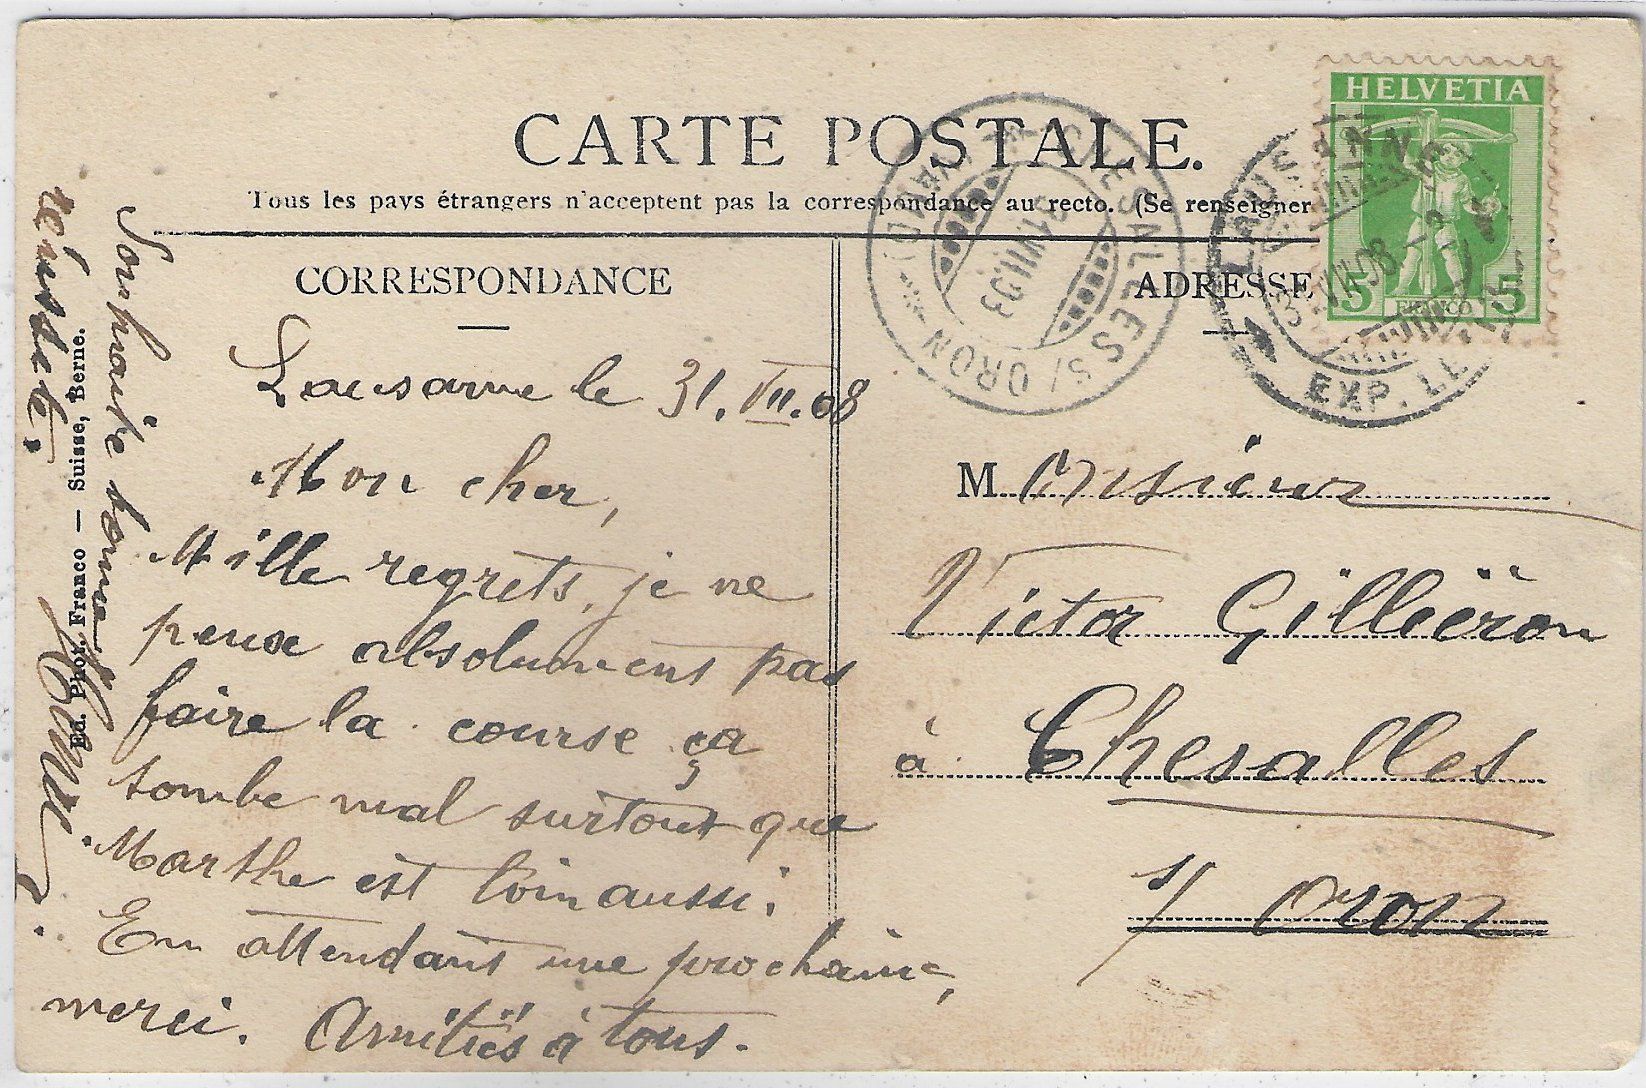 CARTE POSTALE.
Tous les pays étrangers n'acceptent pas la correspondance au recto. (Se renseigner
CORRESPONDANCE
ADRESSE
HELVETIA
5 FRANCO 5
LAUSANNE
31.VII.08
EXP. LE
CHESALLES S/ ORON (VAUD)
31.VII.08
Lausanne le 31.VII.08
Mon cher,
Mille regrets, je ne
peux absolument pas
faire la course ça
tombe mal surtout que
Marthe est loin aussi.
En attendant une prochaine,
merci. Amitiés à tous.
Souhaite bonne
réussite.
Ed. Phot. Franco — Suisse, Berne.
Monsieur
Victor Gilliéron
à Chesalles
s/ Oron